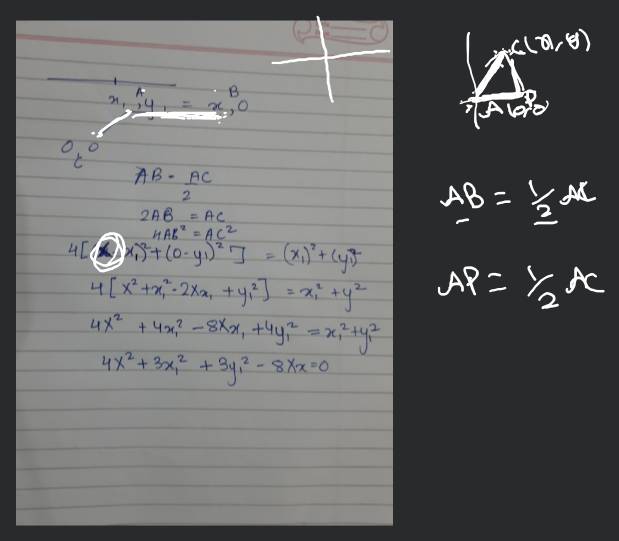 A B
x₁, y₁ = x, 0
0, 0
C
AB = AC/2
2AB = AC
4AB² = AC²
4[(x x₁)² + (0-y₁)²] = (x₁)² + (y₁)²
4[x² + x₁² - 2xx₁ + y₁²] = x₁² + y²
4x² + 4x₁² - 8xx₁ + 4y₁² = x₁² + y₁²
4x² + 3x₁² + 3y₁² - 8xx = 0
AB = 1/2 AC
AP = 1/2 AC